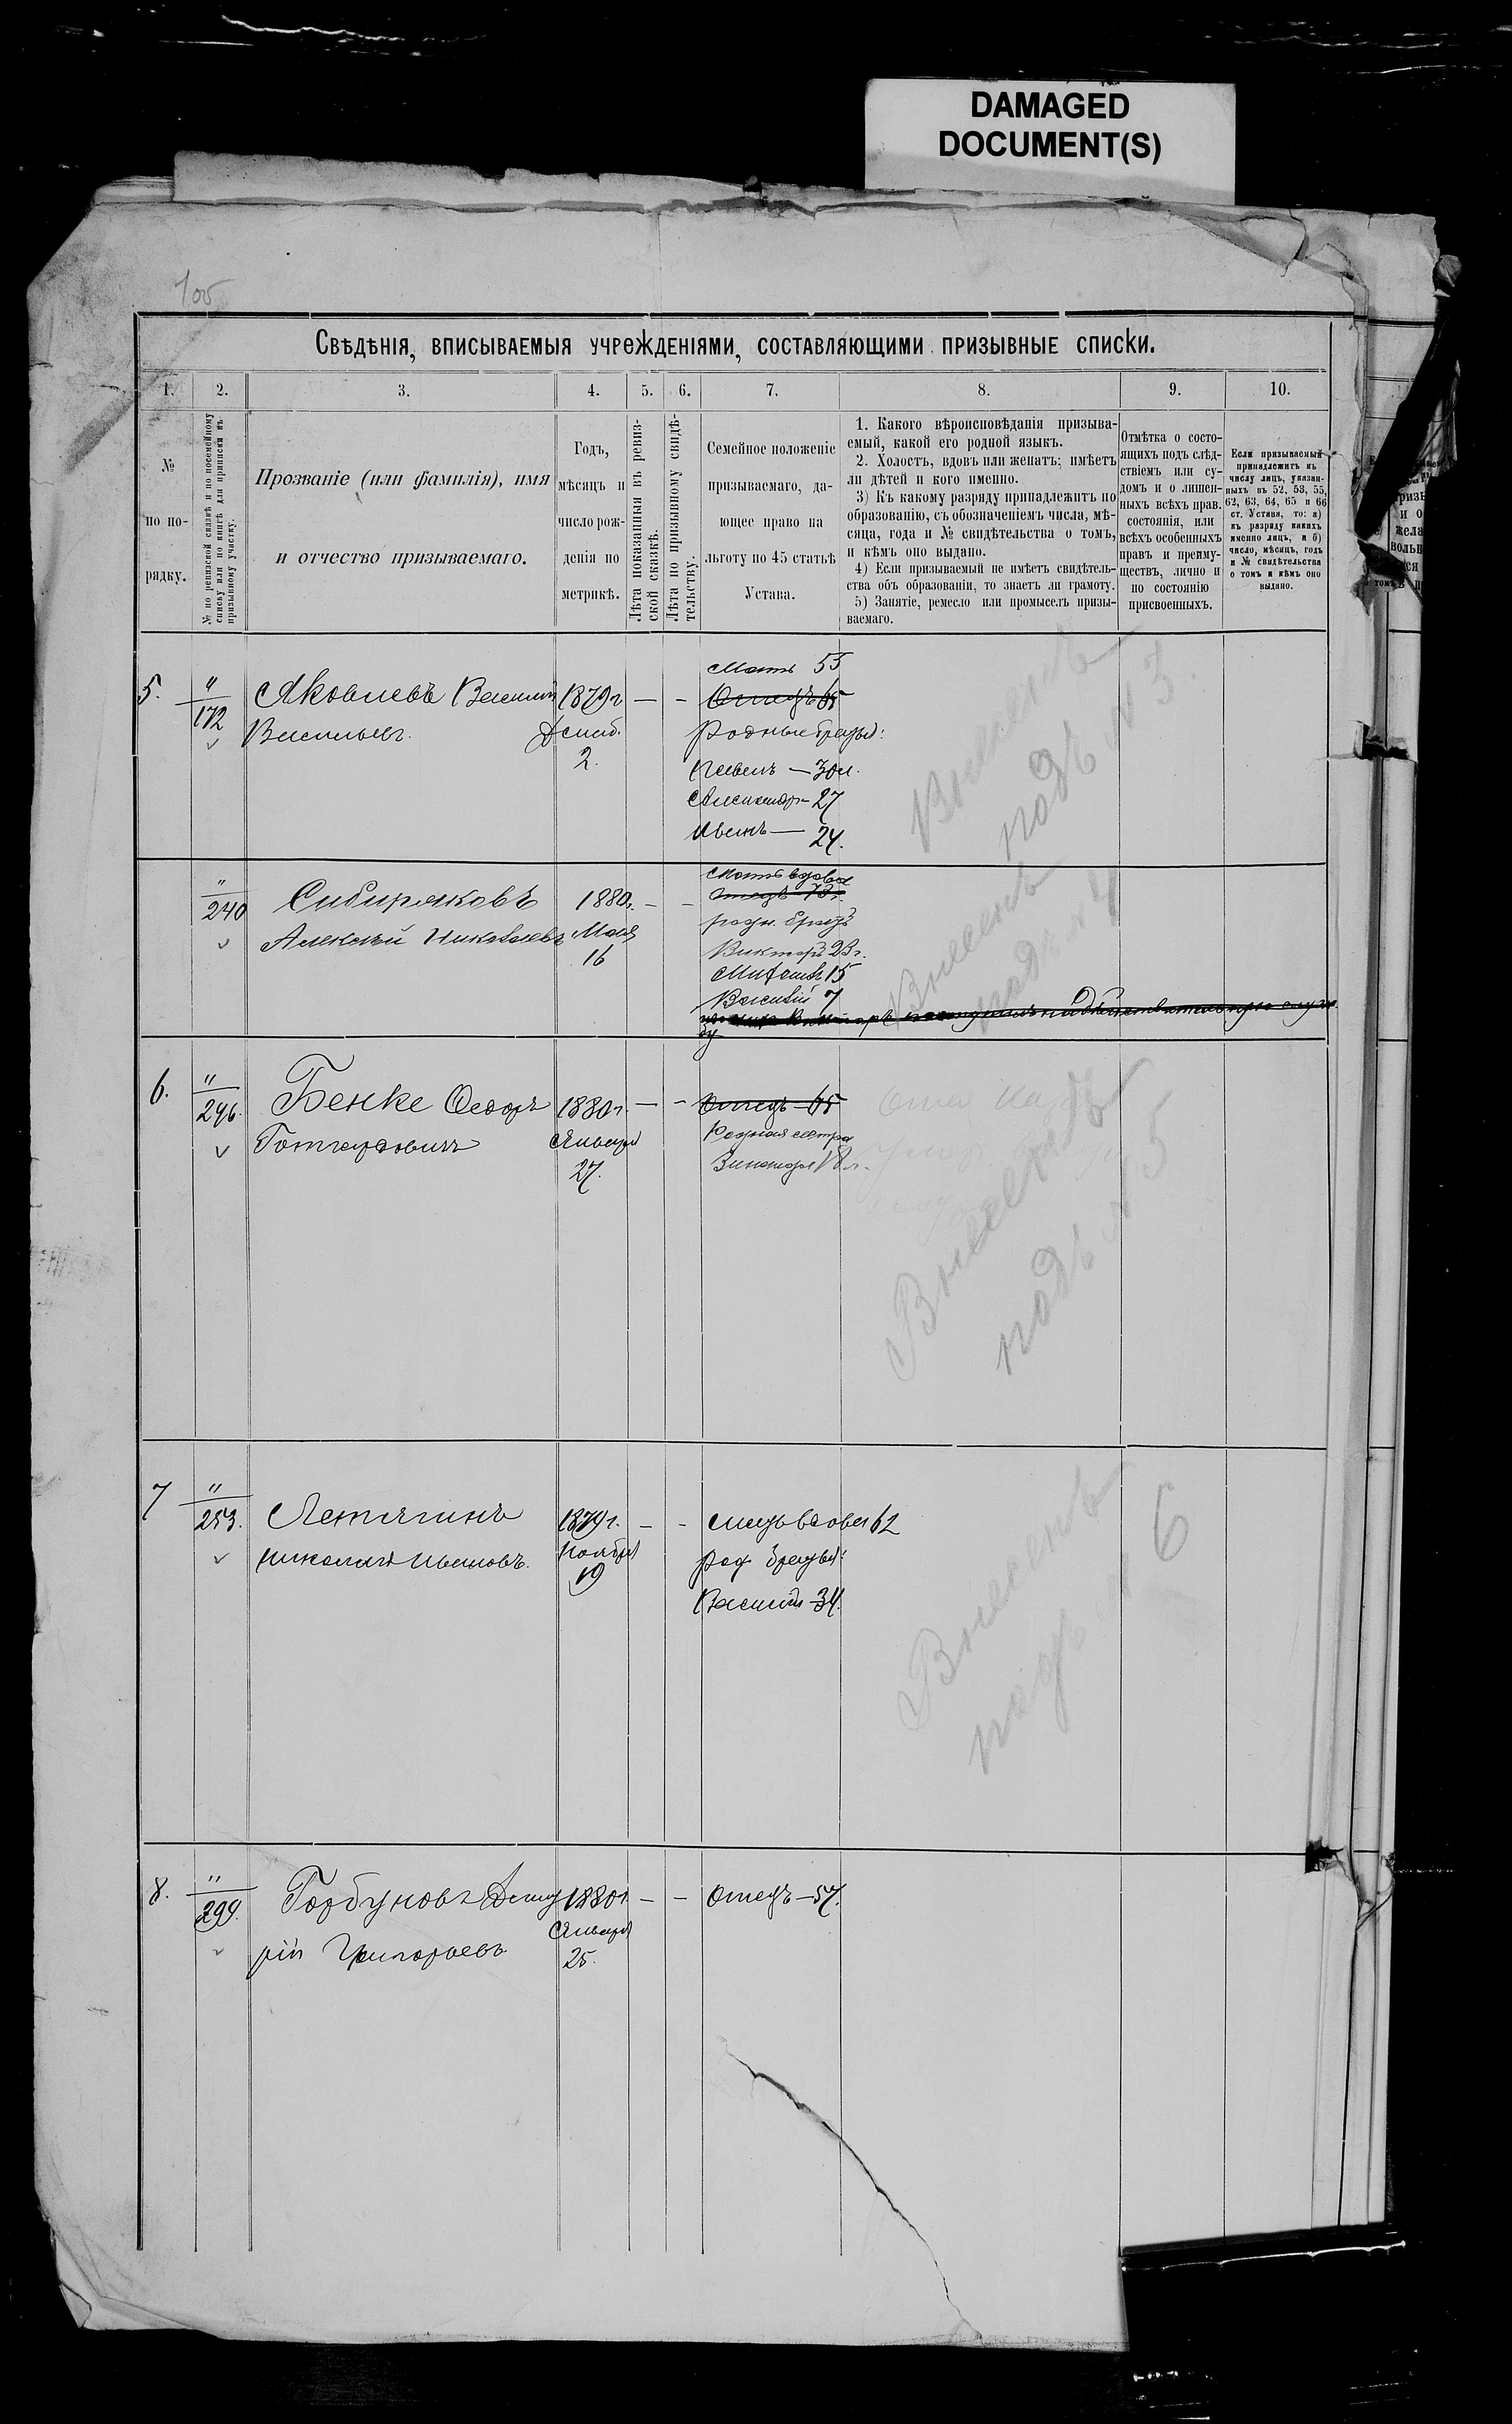 DAMAGED
DOCUMENT(S)
Свѣдѣнія, вписываемыя учрежденіями, составляющими призывные списки.
1. 2. 3. 4. 5. 6. 7. 8. 9. 10.
№
по по-
рядку.
№ по ревизской сказкѣ и по посемейному
списку или по книгѣ для приписки къ
призывному участку.
Прозваніе (или фамилія), имя
и отчество призываемаго.
Годъ,
мѣсяцъ и
число рож-
денія по
метрикѣ.
Лѣта показанныя въ ревиз-
ской сказкѣ.
Лѣта по призывному свидѣ-
тельству.
Семейное положеніе
призываемаго, да-
ющее право на
льготу по 45 статьѣ
Устава.
1. Какого вѣроисповѣданія призыва-
емый, какой его родной языкъ.
2. Холостъ, вдовъ или женатъ; имѣетъ
ли дѣтей и кого именно.
3) Къ какому разряду принадлежитъ по
образованію, съ обозначеніемъ числа, мѣ-
сяца, года и № свидѣтельства о томъ,
и кѣмъ оно выдано.
4) Если призываемый не имѣетъ свидѣтель-
ства объ образованіи, то знаетъ ли грамоту.
5) Занятіе, ремесло или промыселъ призы-
ваемаго.
Отмѣтка о состо-
ящихъ подъ слѣд-
ствіемъ или су-
домъ и о лишен-
ныхъ всѣхъ прав.
состоянія, или
всѣхъ особенныхъ
правъ и преиму-
ществъ, лично и
по состоянію
присвоенныхъ.
Если призываемый
принадлежитъ къ
числу лицъ, указан-
ныхъ въ 52, 53, 55,
62, 63, 64, 65 и 66
ст. Устава, то: а)
къ разряду какихъ
именно лицъ, и б)
число, мѣсяцъ, годъ
и № свидѣтельства
о томъ и кѣмъ оно
выдано.
5. "
172
Яковлевъ Василій
Васильевъ.
1879 г
Декаб.
2.
— -
Мать 55
Отецъ 65
Родные братья:
Павелъ — 30 л.
Александръ - 27
Иванъ — 24.
Вынесенъ
подъ № 3.
"
240
Сибиряковъ
Алексѣй Николаевъ
1880 г.
Мая
16
— -
Мать вдова
родн. братъ
Викторъ 23 г.
15
Василій 7
Вынесенъ
подъ № 4
6. "
246.
Бенке Ѳедоръ
Готгардовичъ
1880 г.
Января
27.
— -
Отецъ - 65
Родная сестра
18 л.
Вынесенъ
подъ № 5
7 "
253.
Летягинъ
Николай Ивановъ.
1879 г.
Ноября
19
— -
вдова 62
род. братья:
Василій - 34.
Вынесенъ
подъ № 6
8. "
299.
Горбуновъ Дмит
рій Григорьевъ
1880 г.
Января
25.
— -
Отецъ — 57.